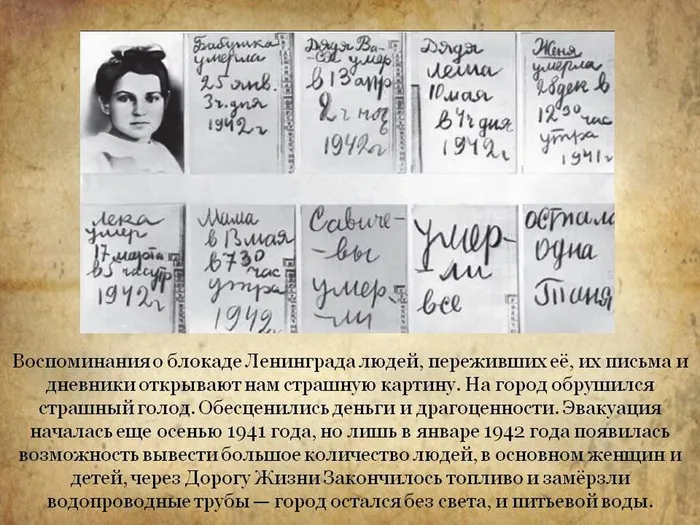 Бабушка
умерла
25 янв.
3 ч. дня
1942 г
Дядя Ва-
ся умер
в 13 апр
2 ч ноч
1942 г
Дядя
Леша
10 мая
в 4 ч дня
1942 г
Женя
умерла
28 дек в
12 30 час
утра
1941 г
Лека
умер
17 марта
в 5 час утр
1942 г
Мама
в 13 мая
в 7 30
час
утра
1942
Савиче-
-вы
умер-
-ли
умер-
ли
все
остала
одна
Таня
Воспоминания о блокаде Ленинграда людей, переживших её, их письма и
дневники открывают нам страшную картину. На город обрушился
страшный голод. Обесценились деньги и драгоценности. Эвакуация
началась еще осенью 1941 года, но лишь в январе 1942 года появилась
возможность вывести большое количество людей, в основном женщин и
детей, через Дорогу Жизни Закончилось топливо и замёрзли
водопроводные трубы — город остался без света, и питьевой воды.